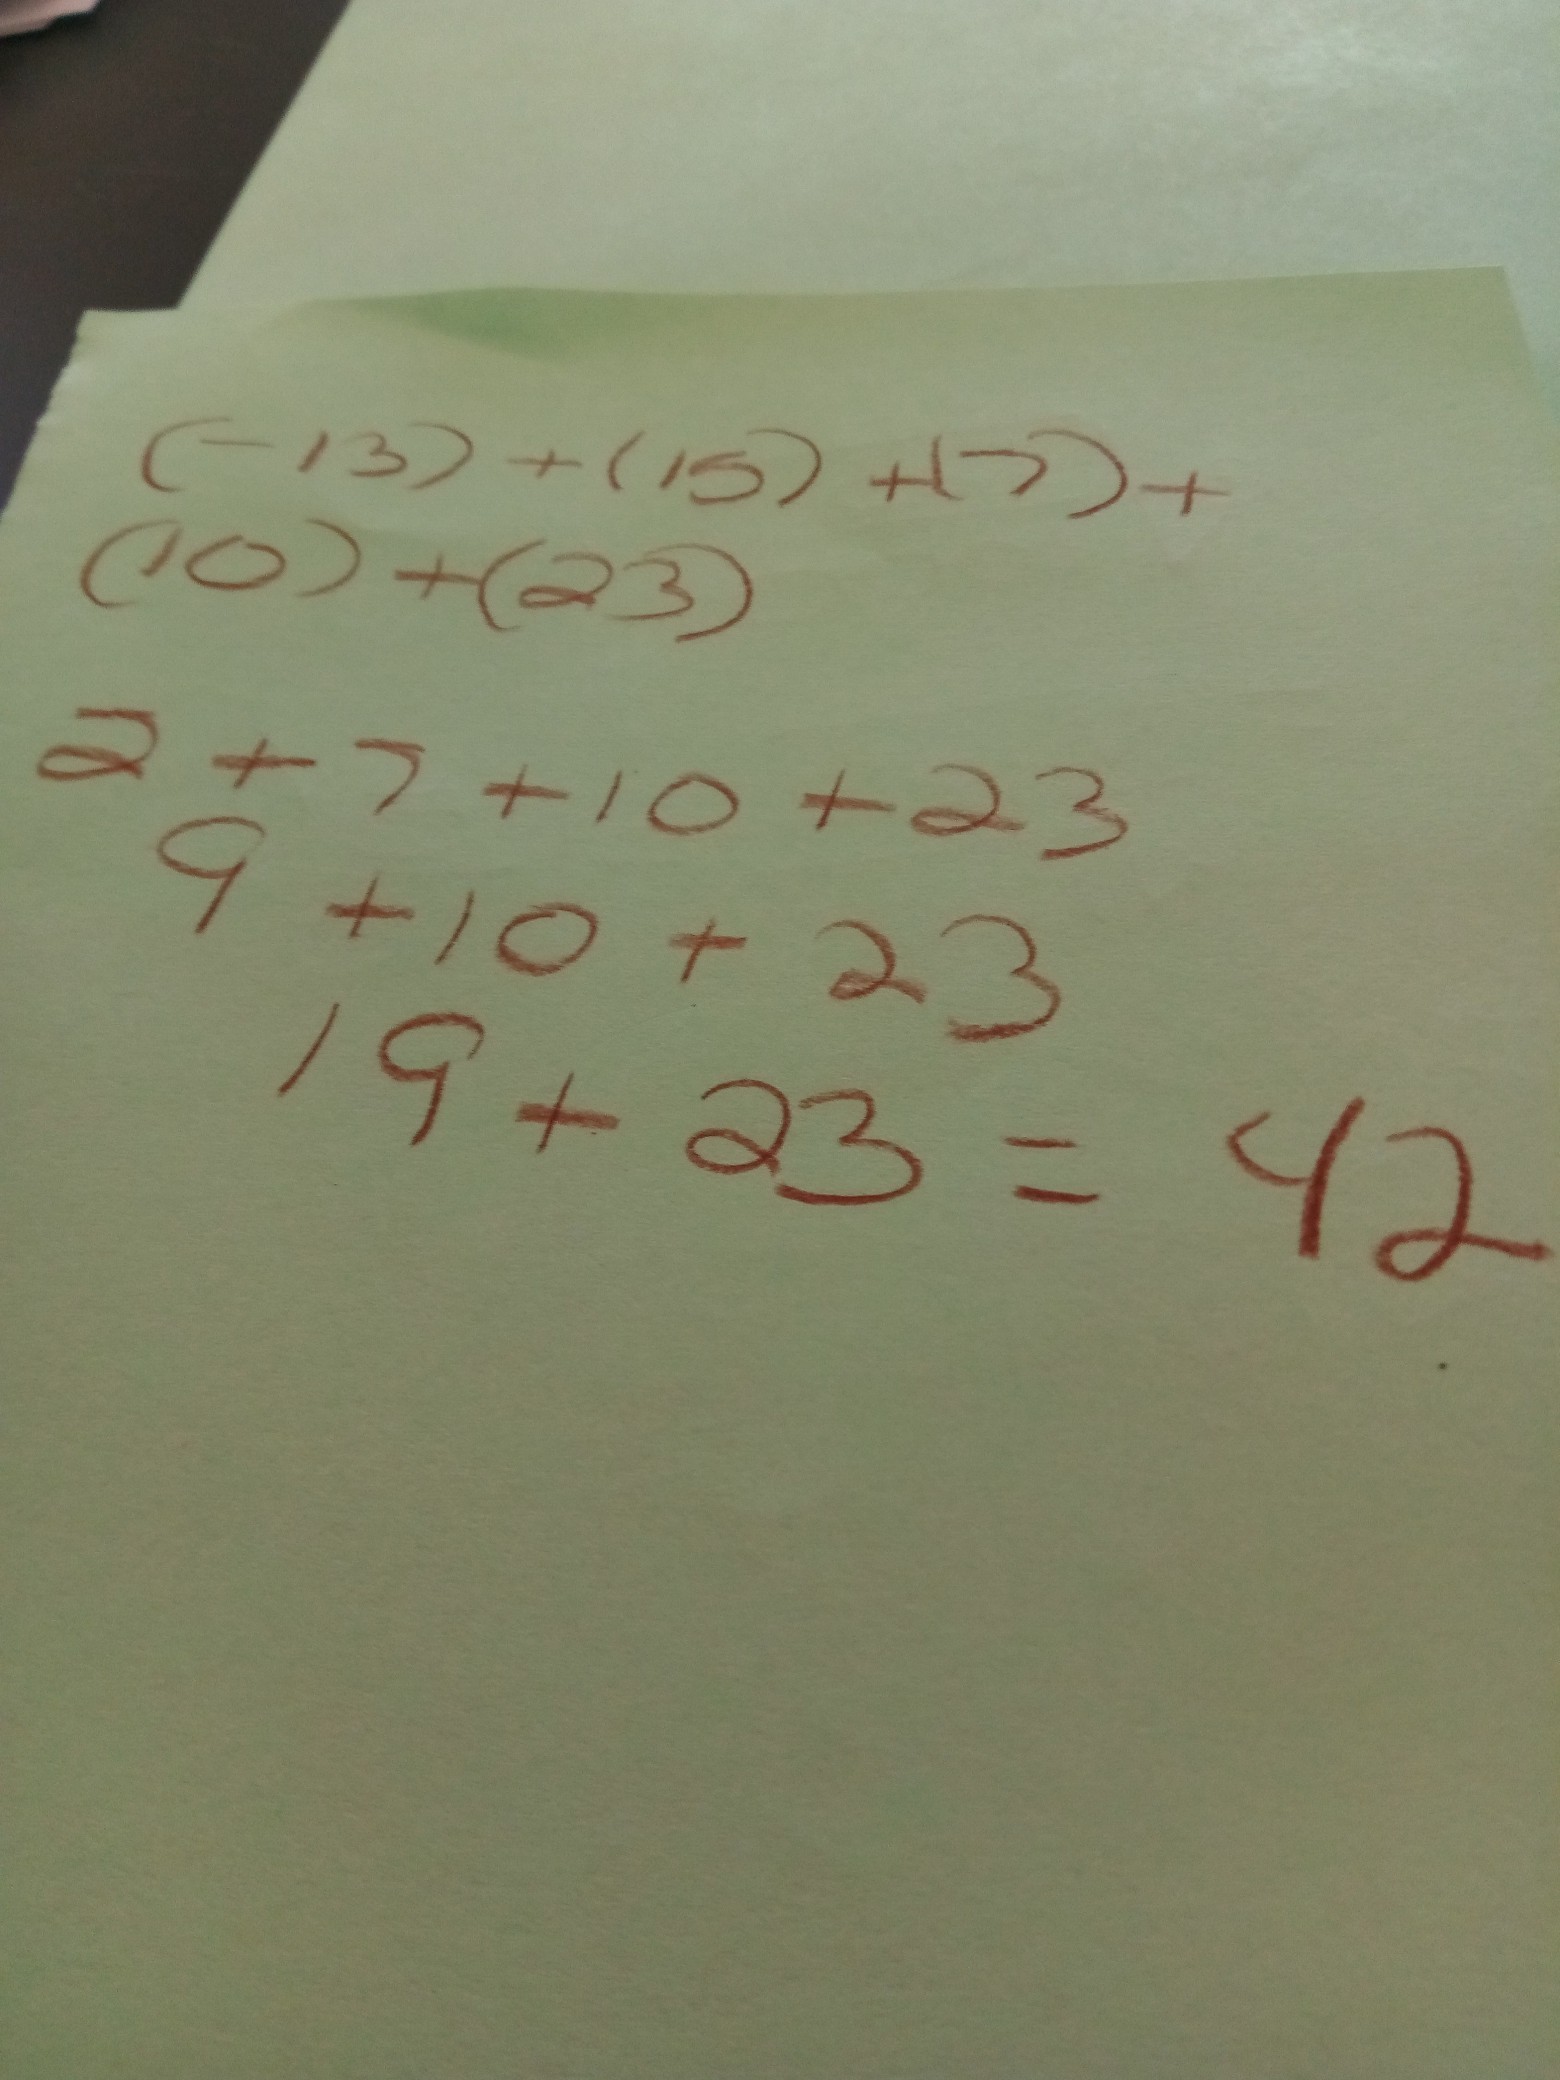 (-13) + (15) + (7) +
(10) + (23)
2 + 7 + 10 + 23
9 + 10 + 23
19 + 23 = 42